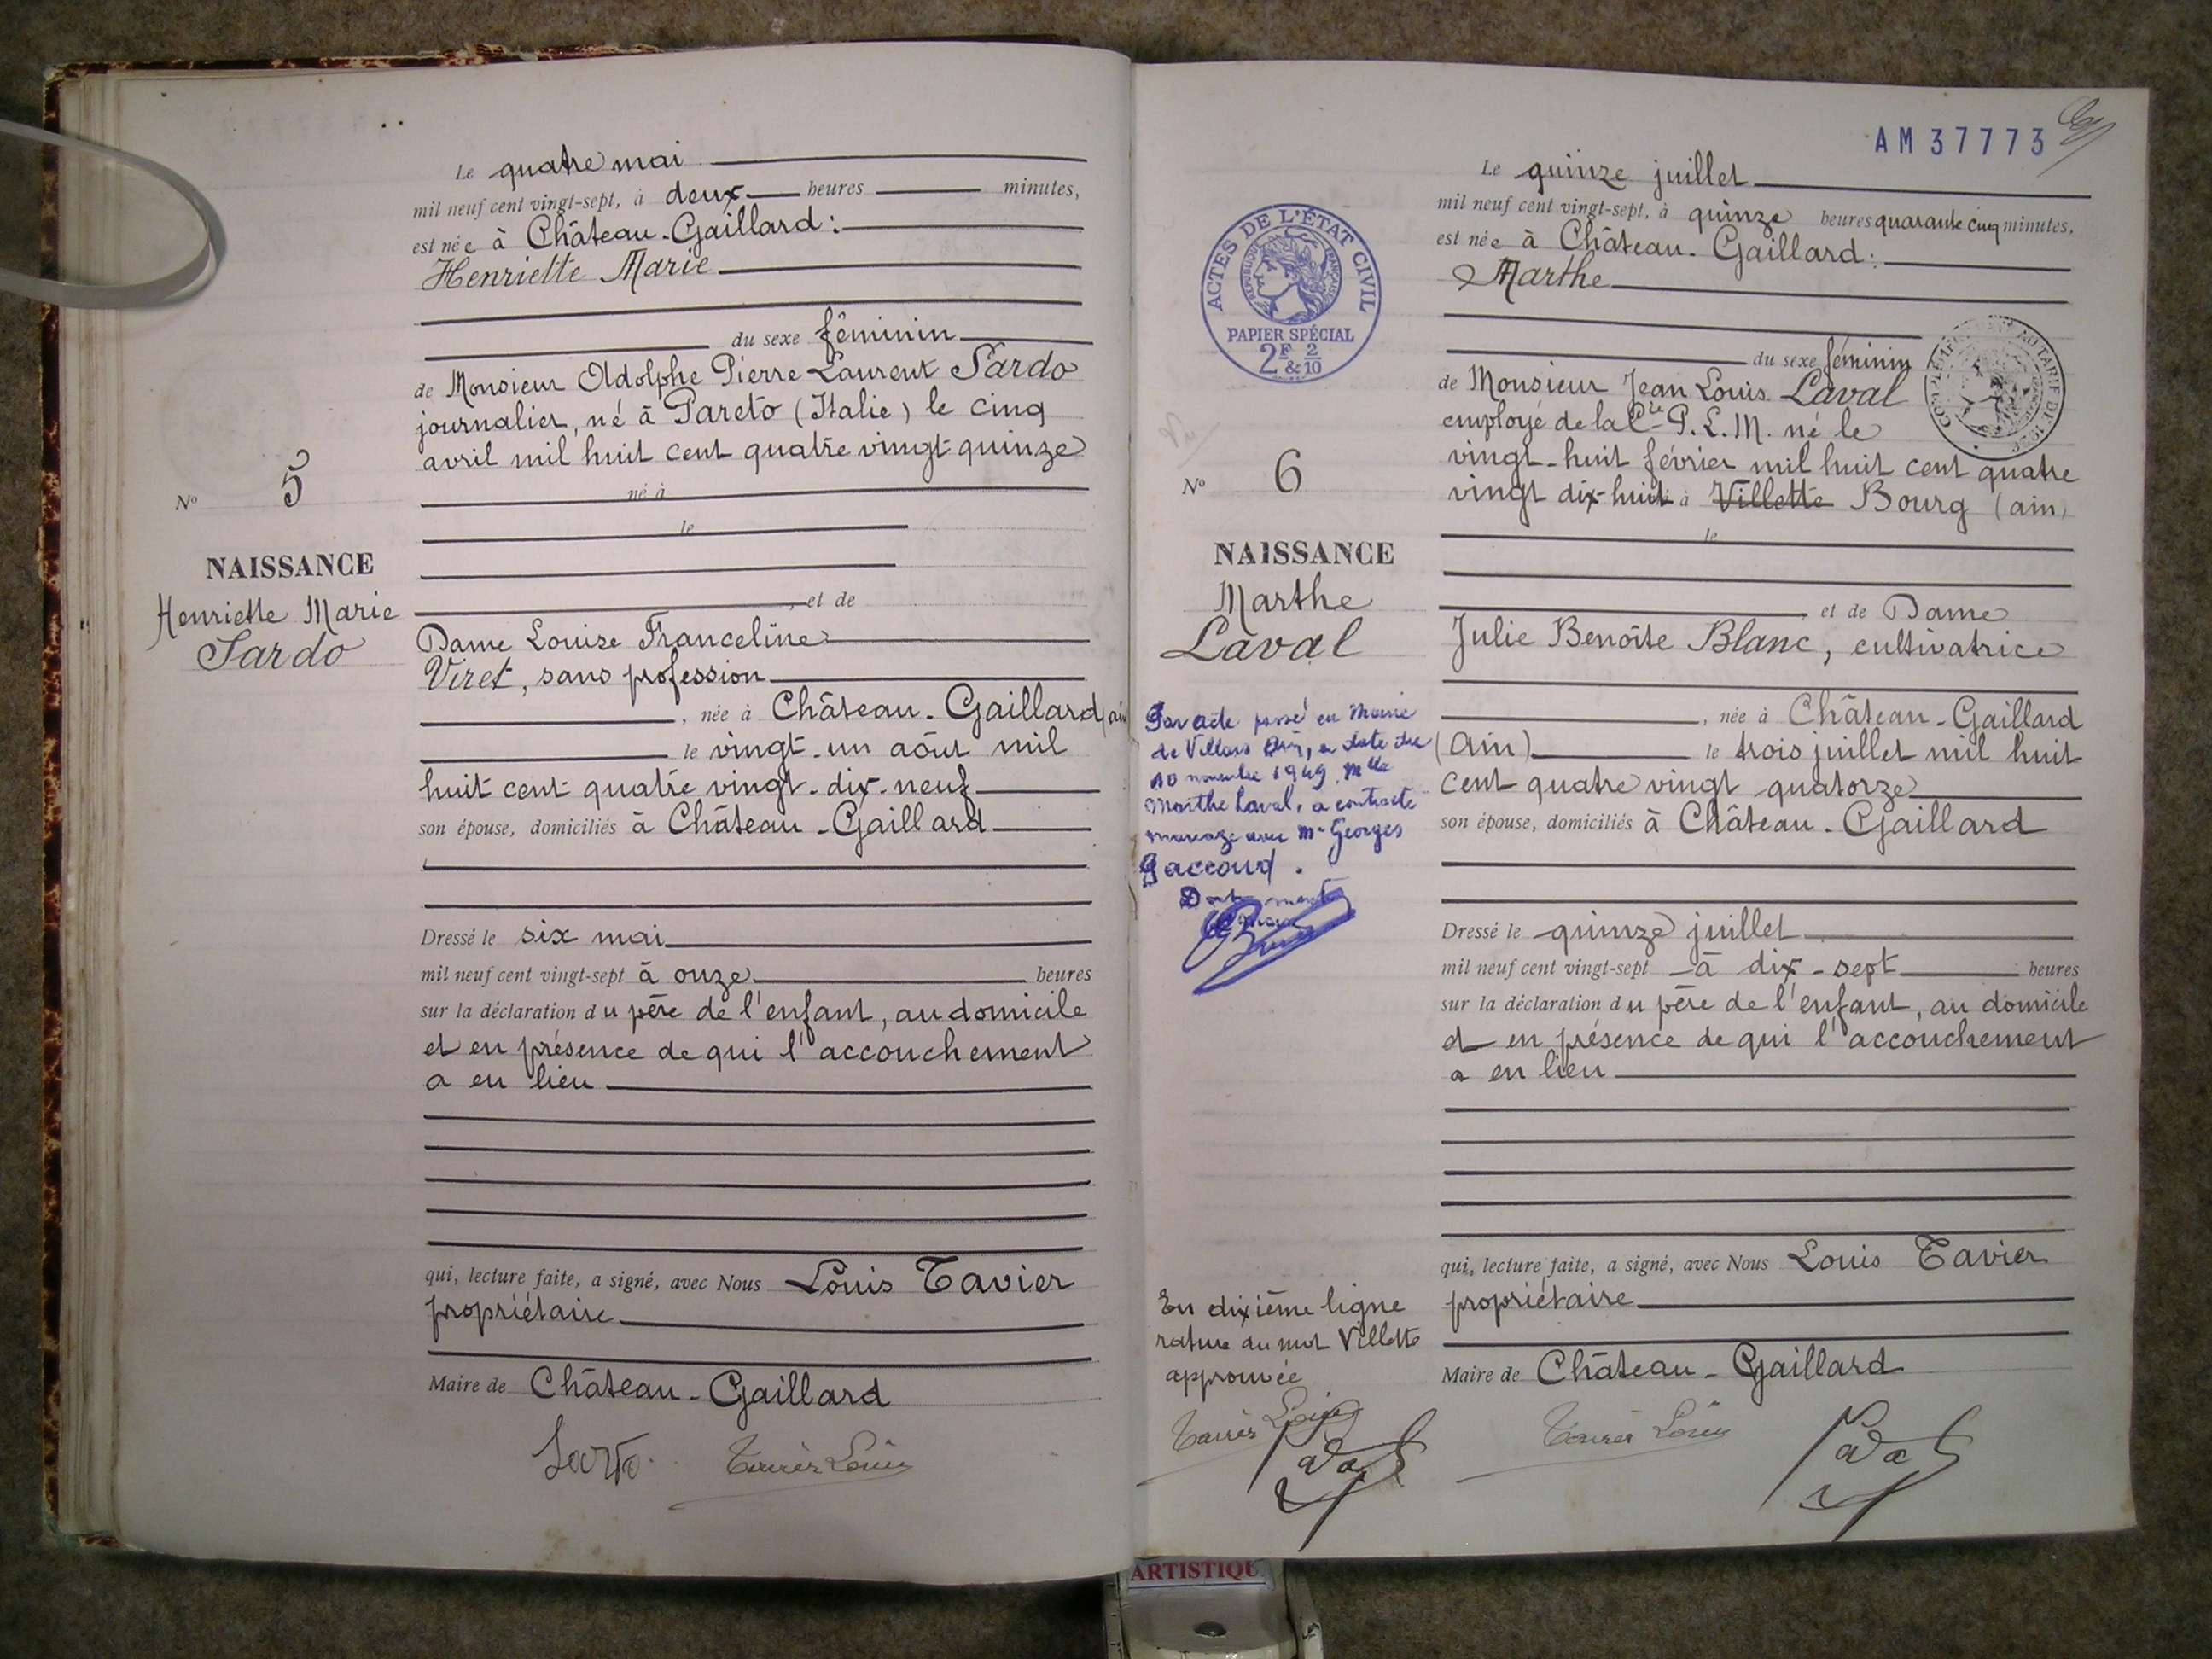 Le quatre mai
mil neuf cent vingt-sept, à deux heures minutes,
est née à Château-Gaillard :
Henriette Marie
du sexe féminin
de Monsieur Adolphe Pierre Laurent Sardo
journalier, né à Pareto (Italie) le cinq
avril mil huit cent quatre vingt quinze
né à
le
, et de
Dame Louise Franceline
Viret, sans profession
, née à Château-Gaillard (ain
le vingt-un août mil
huit cent quatre vingt-dix-neuf
son épouse, domiciliés à Château-Gaillard
Dressé le six mai
mil neuf cent vingt-sept à onze heures
sur la déclaration du père de l'enfant, au domicile
et en présence de qui l'accouchement
a eu lieu
qui, lecture faite, a signé, avec Nous Louis Tavier
propriétaire
Maire de Château-Gaillard
Sardo Tavier Louis
No 5
NAISSANCE
Henriette Marie
Sardo
AM 37773
Le quinze juillet
mil neuf cent vingt-sept, à quinze heures quarante cinq minutes,
est née à Château-Gaillard :
Marthe
du sexe féminin
de Monsieur Jean Louis Laval
employé de la Cie P.L.M. né le
vingt-huit février mil huit cent quatre
vingt dix-huit à Villette Bourg (ain)
le
et de Dame
Julie Benoîte Blanc, cultivatrice
, née à Château-Gaillard
(Ain) le trois juillet mil huit
cent quatre vingt quatorze
son épouse, domiciliés à Château-Gaillard
Dressé le quinze juillet
mil neuf cent vingt-sept à dix-sept heures
sur la déclaration du père de l'enfant, au domicile
et en présence de qui l'accouchement
a eu lieu
qui, lecture faite, a signé, avec Nous Louis Tavier
propriétaire
Maire de Château-Gaillard
Tavier Louis
ACTES DE L'ÉTAT CIVIL
RÉPUBLIQUE FRANÇAISE
PAPIER SPÉCIAL
2F & 2/10
No 6
NAISSANCE
Marthe
Laval
Par acte passé en Mairie
de Villars Ain, en date du
10 novembre 1949, Mlle
Marthe Laval, a contracté
mariage avec Mr Georges
Gaccoud.
Dont mention
En dixième ligne
rature du mot Villette
approuvée
Tavier Louis
ARTISTIQU